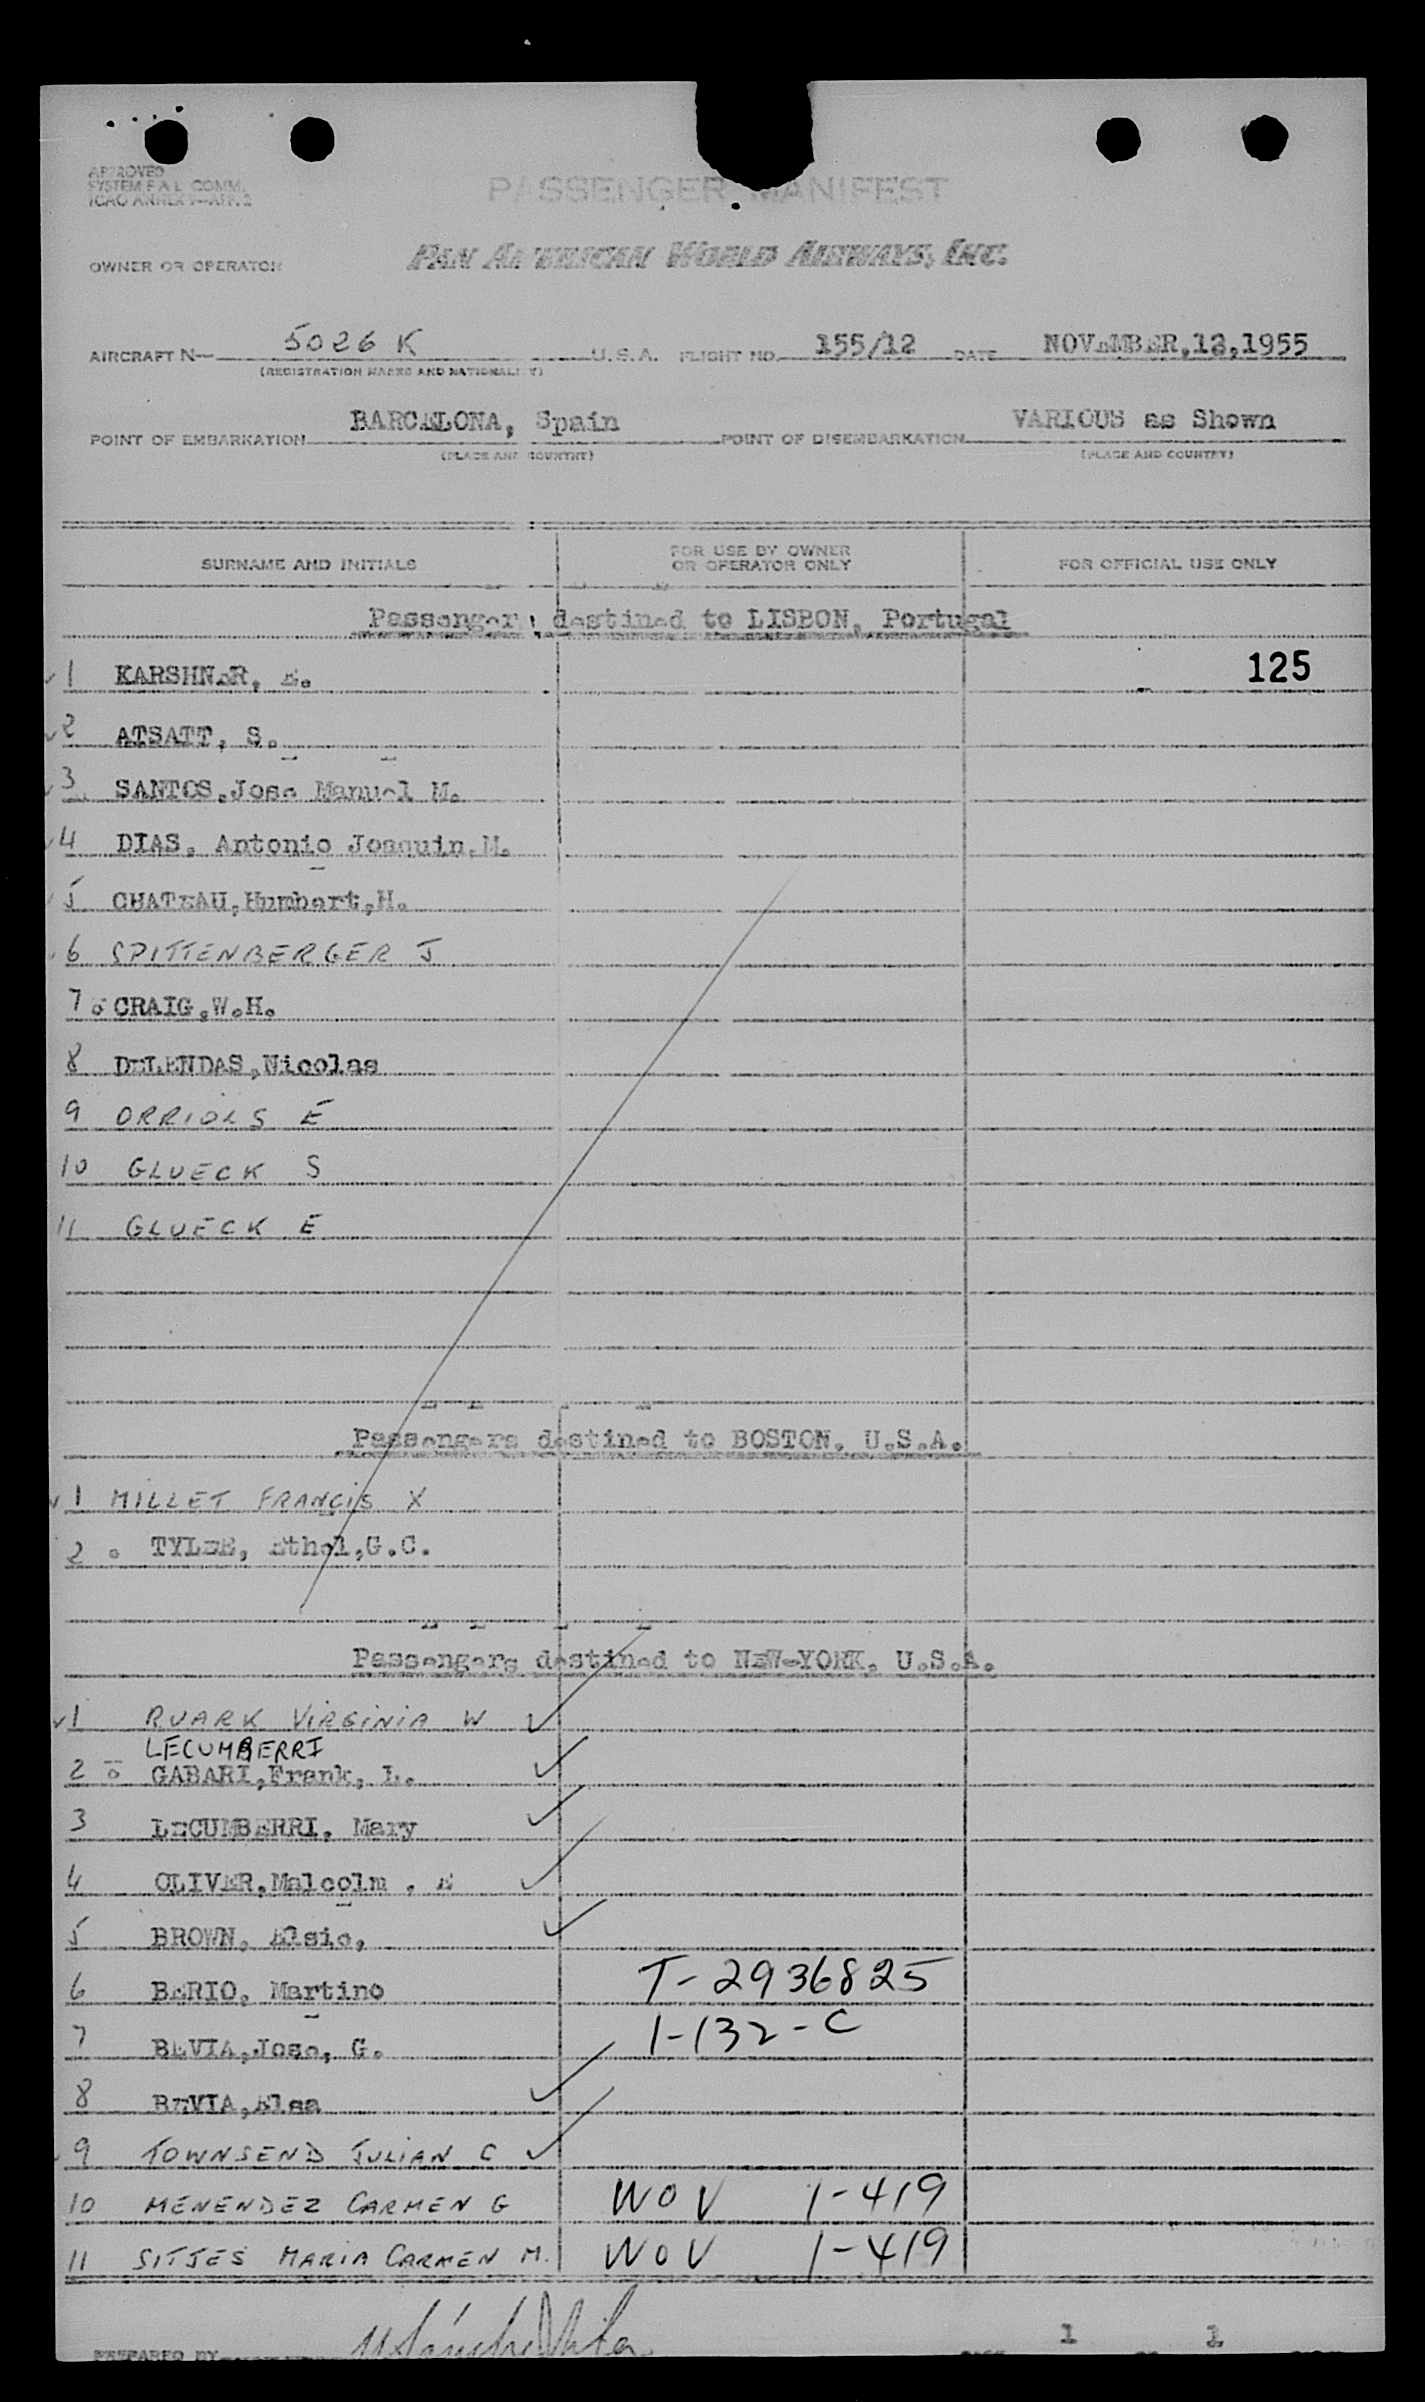 APPROVED
SYSTEM F A L COMM.
ICAO ANNEX 9—APP. 2
PASSENGER MANIFEST
OWNER OR OPERATOR PAN AMERICAN WORLD AIRWAYS, INC.
AIRCRAFT N— 5026 K U. S. A. FLIGHT NO. 155/12 DATE NOVEMBER,12,1955
(REGISTRATION MARKS AND NATIONALITY)
POINT OF EMBARKATION BARCELONA, Spain POINT OF DISEMBARKATION VARIOUS as Shown
(PLACE AND COUNTRY) (PLACE AND COUNTRY)
SURNAME AND INITIALS FOR USE BY OWNER OR OPERATOR ONLY FOR OFFICIAL USE ONLY
Passengers destined to LISBON, Portugal
1 KARSHNER, E. 125
2 ATSATT, S.
3 SANTOS,Jose Manuel M.
4 DIAS, Antonio Joaquin,M.
5 CHATEAU,Humbert,H.
6 SPITTENBERGER J
7 CRAIG,W.H.
8 DELENDAS,Nicolas
9 ORRIOLS E
10 GLUECK S
11 GLUECK E
Passengers destined to BOSTON, U.S.A.
1 MILLET FRANCIS X
2 TYLEE, Ethel,G.C.
Passengers destined to NEW-YORK, U.S.A.
1 RUARK VIRGINIA W
LECUMBERRI
2 GABARI,Frank, L.
3 LECUMBERRI, Mary
4 OLIVER,Malcolm , E
5 BROWN, Elsie,
6 BERIO, Martino T-2936825
7 BEVIA,Jose, G. 1-132-C
8 BEVIA,Elsa
9 TOWNSEND JULIAN C
10 MENENDEZ CARMEN G WOV 1-419
11 SITJES MARIA CARMEN M. WOV 1-419
PREPARED BY 1 1